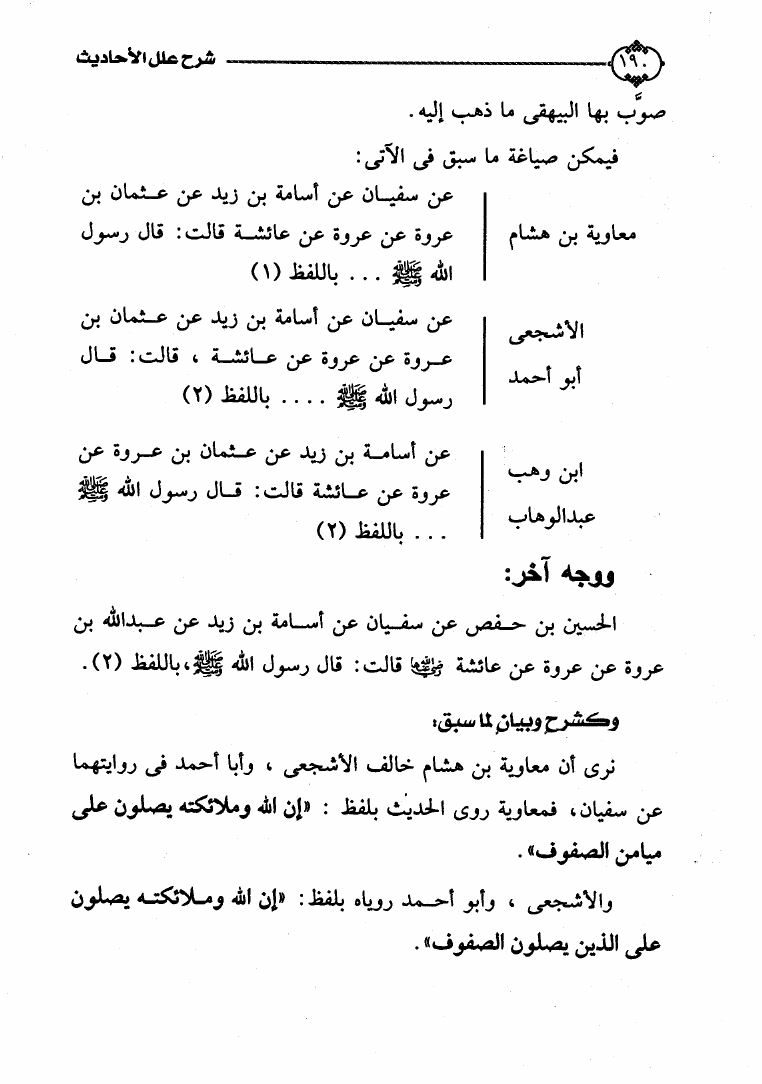 ١٩٠ شرح علل الأحاديث
صوَّب بها البيهقى ما ذهب إليه .
فيمكن صياغة ما سبق فى الآتى :
معاوية بن هشام
عن سفيان عن أسامة بن زيد عن عثمان بن
عروة عن عروة عن عائشة قالت : قال رسول
الله ﷺ ... باللفظ (١)
الأشجعى
أبو أحمد
عن سفيان عن أسامة بن زيد عن عثمان بن
عروة عن عروة عن عائشة ، قالت : قال
رسول الله ﷺ .... باللفظ (٢)
ابن وهب
عبدالوهاب
عن أسامة بن زيد عن عثمان بن عروة عن
عروة عن عائشة قالت : قال رسول الله ﷺ
... باللفظ (٢)
ووجه آخر :
الحسين بن حفص عن سفيان عن أسامة بن زيد عن عبدالله بن
عروة عن عروة عن عائشة رضي الله عنها قالت : قال رسول الله ﷺ ، باللفظ (٢) .
وكشرح وبيان لما سبق :
نرى أن معاوية بن هشام خالف الأشجعى ، وأبا أحمد فى روايتهما
عن سفيان ، فمعاوية روى الحديث بلفظ : «إن الله وملائكته يصلون على
ميامن الصفوف» .
والأشجعى ، وأبو أحمد روياه بلفظ : «إن الله وملائكته يصلون
على الذين يصلون الصفوف» .